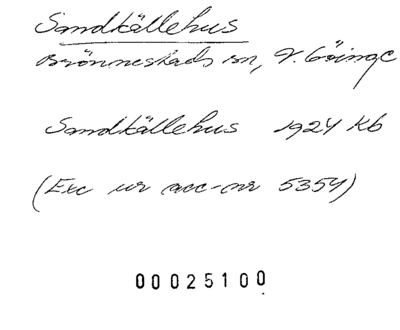 Sandkällehus
Brönnestads sn, V. Göinge
Sandkällehus 1924 Kb
(Exc ur acc-nr 5354)
00025100